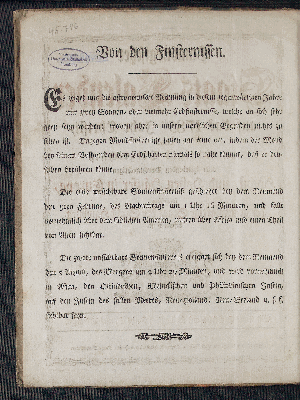 Von den Finsternissen.
Es zeiget uns die astronomische Rechnung in diesem gegenwärtigen Jahre
nur zwey Sonnen- oder vielmehr Erdfinsternisse, welche an sich sehr
groß seyn werden, wovon aber in unsern nordischen Gegenden nichts zu
sehen ist. Dagegen Mondfinsternisse gar keine
bey seinem Vollschein dem Erdschatten niemals so nahe kömmt, daß er den-
selben berühren könne.
Die erste unsichtbare Sonnenfinsterniß geschiehet bey dem Neumond
den Februar, des Nachmittags um 1 Uhr 15 Minuten, und fällt
vornemlich über das südlichen America, weiter über Africa und einen Theil
von Asien sichtbar.
Die zweyte unsichtbare Sonnenfinsterniß ereignet sich bey dem Neumond
August, des Morgens um Uhr Minuten, und wird vornemlich
in Asien, den Ostindischen, Molukischen und Philippinischen Inseln,
auf den Inseln des stillen Meeres, Neuholland, Neuseeland u. s. f.
sichtbar seyn.